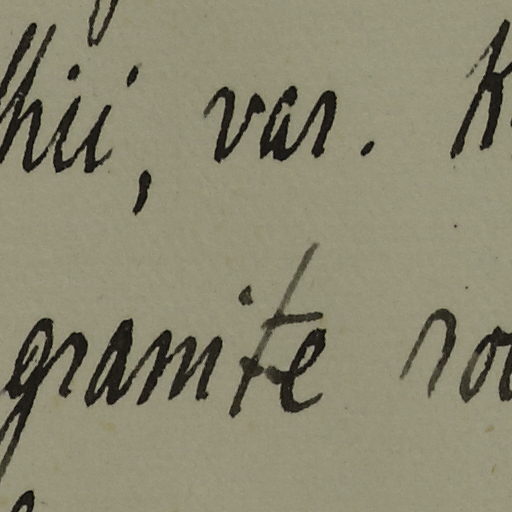 hii, var. K
granite ro